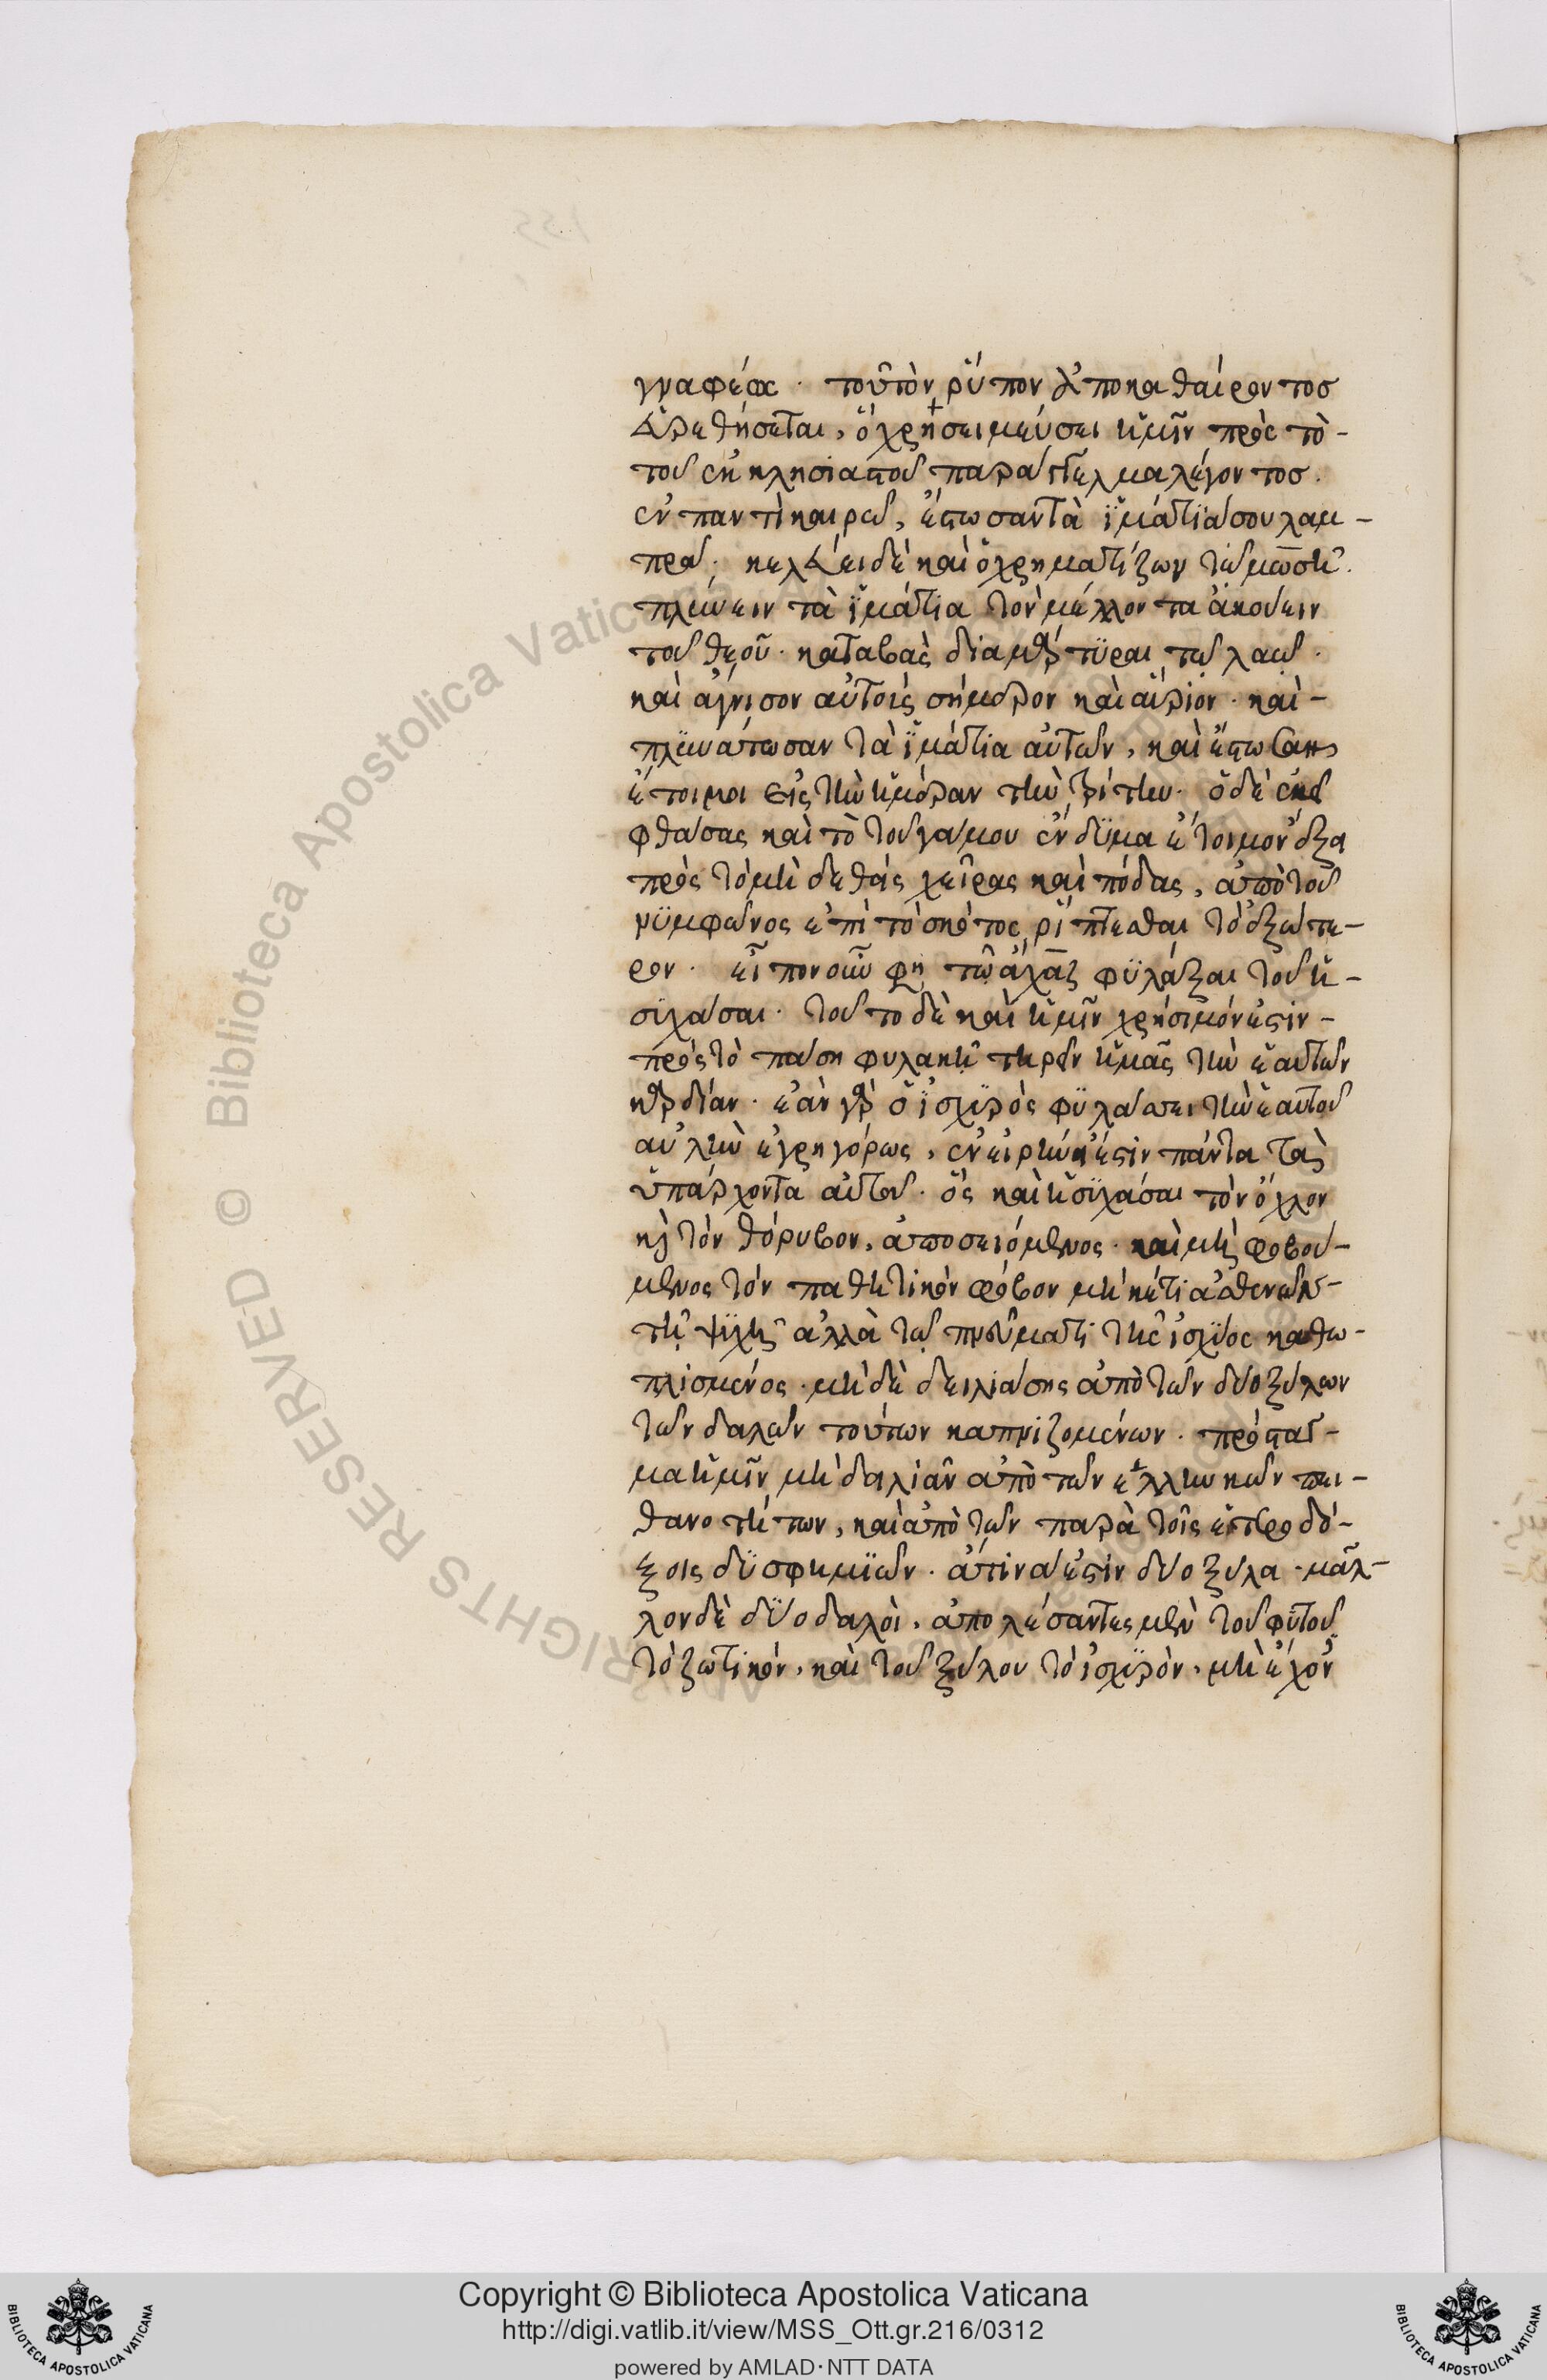 γναφέως · τοῦτὸν ῥύπον ἀποκαθαίροντοσ
εὑρεθήσεται, ὃ χρησειμεύσει ἡμῖν πρὸς τὸ-
τοῦ ἐκκλησιαστοῦ παράγγελμα λέγοντοσ.
ἐν παντὶ καιρῶ, ἔστωσαν τὰ ἱμάτιά σου λαμ-
πρά · κελεύει δὲ καὶ ὁ χρηματίζων τῶ μωσῆ.
πλύνειν τὰ ἱμάτια τὸν μέλλοντα ἀκούειν
τοῦ θεοῦ · καταβὰς διαμάρτυραι τῶ λαῶ ·
καὶ ἅγνισον αὐτοὶς σήμερον καὶ αὔριον · καὶ-
πλυνάτωσαν τὰ ἱμάτια αὐτῶν, καὶ ἔστωσαν
ἕτοιμοι εἰς τὴν ἡμέραν τὴν τρίτην · ὁ δὲ ἐκεῖ
φθάσας καὶ τὸ τοῦ γάμου ἔνδυμα ἕτοιμον ἕξει
πρὸς τὸ μὴ δεθὰς χεῖρας καὶ πόδας, ἀπὸ τοῦ
νυμφῶνος ἐπὶ τὸ σκότος ῥίπτεσθαι τὸ ἐξώτε-
ρον · εἶπον οὖν φη τῶ ἀχὰζ φυλάξαι τοῦ ἡ-
συχάσαι · τοῦτο δὲ καὶ ἡμῖν χρήσιμόν ἐστιν-
πρὸς τὸ πάση φυλακῆ τηρεῖν ἡμᾶς τὴν ἑαυτῶν
καρδίαν · ἐὰν γὰρ ὁ ἰσχυρὸς φυλάσσει τὴν ἑαυτοῦ
αὐλὴν ἐγρηγόρως, ἐν εἰρήνη ἐστιν πάντα τὰ
ὑπάρχοντα αὐτοῦ · ὃς καὶ ἡσυχάσαι τὸν ὄχλον
καὶ τὸν θόρυβον, ἀποσειόμενος · καὶ μὴ φοβού-
μενος τὸν παθητικὸν φόβον μηκέτι ἀσθενῶν-
τῆ ψυχῆ ἀλλὰ τῶ πνεύματι τῆς ἰσχύος καθω-
πλισμένος · μὴ δὲ δειλιάσης ἀπὸ τῶν δύο ξύλων
τῶν δαλῶν τούτων καπνιζομένων · πρόσταγ-
μα ἡμῖν μὴ δειλιᾶν ἀπὸ τῶν ἑλληνικῶν πει-
θανοτήτων, καὶ ἀπὸ τῶν παρὰ τοῖς ἑτεροδό-
ξοις δυσφημιῶν · ἅτινά ἐστιν δύο ξύλα · μᾶλ-
λον δὲ δύο δαλοὶ, ἀπολέσαντες μὲν τοῦ φυτοῦ
τὸ ζωτικόν, καὶ τοῦ ξύλου τὸ ἰσχυρὸν, μὴ ἔχον
Copyright © Biblioteca Apostolica Vaticana
http://digi.vatlib.it/view/MSS_Ott.gr.216/0312
powered by AMLAD·NTT DATA